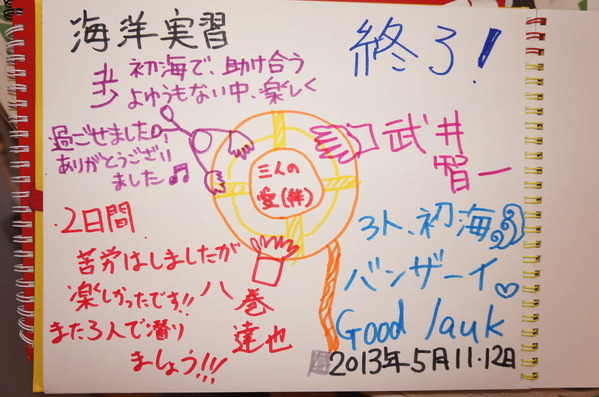 海洋実習
終了!
初海で、助け合う
よゆうもない中、楽しく
過ごせました。
ありがとうござり
ました♫
三人の
愛(絆)
武井
智一
2日間
苦労はしましたが
楽しかったです!!
また3人で潜り
ましょう!!!
八巻
達也
3人、初海
バンザーイ♡
Good lauk
2013年5月11.12日